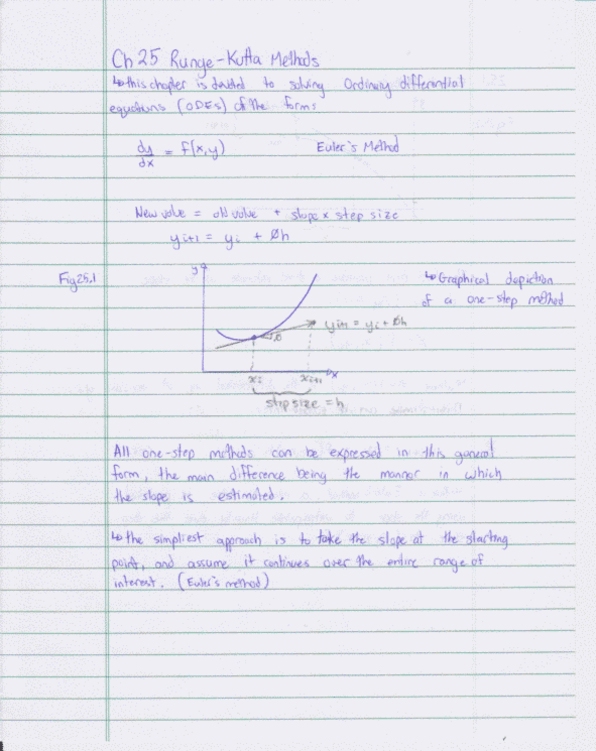 Ch 25 Runge-Kutta Methods
↳ this chapter is devoted to solving Ordinary differential
equations (ODES) of the forms
dy/dx = f(x,y) Euler's Method
New value = old value + slope x step size
yi+1 = yi + Øh
Fig 25.1
y
↳ Graphical depiction
of a one-step method
yi+1 = yi + Øh
Ø
xi xi+1 x
step size = h
All one-step methods can be expressed in this general
form, the main difference being the manner in which
the slope is estimated.
↳ the simpliest approach is to take the slope at the starting
point, and assume it continues over the entire range of
interest. (Euler's method)